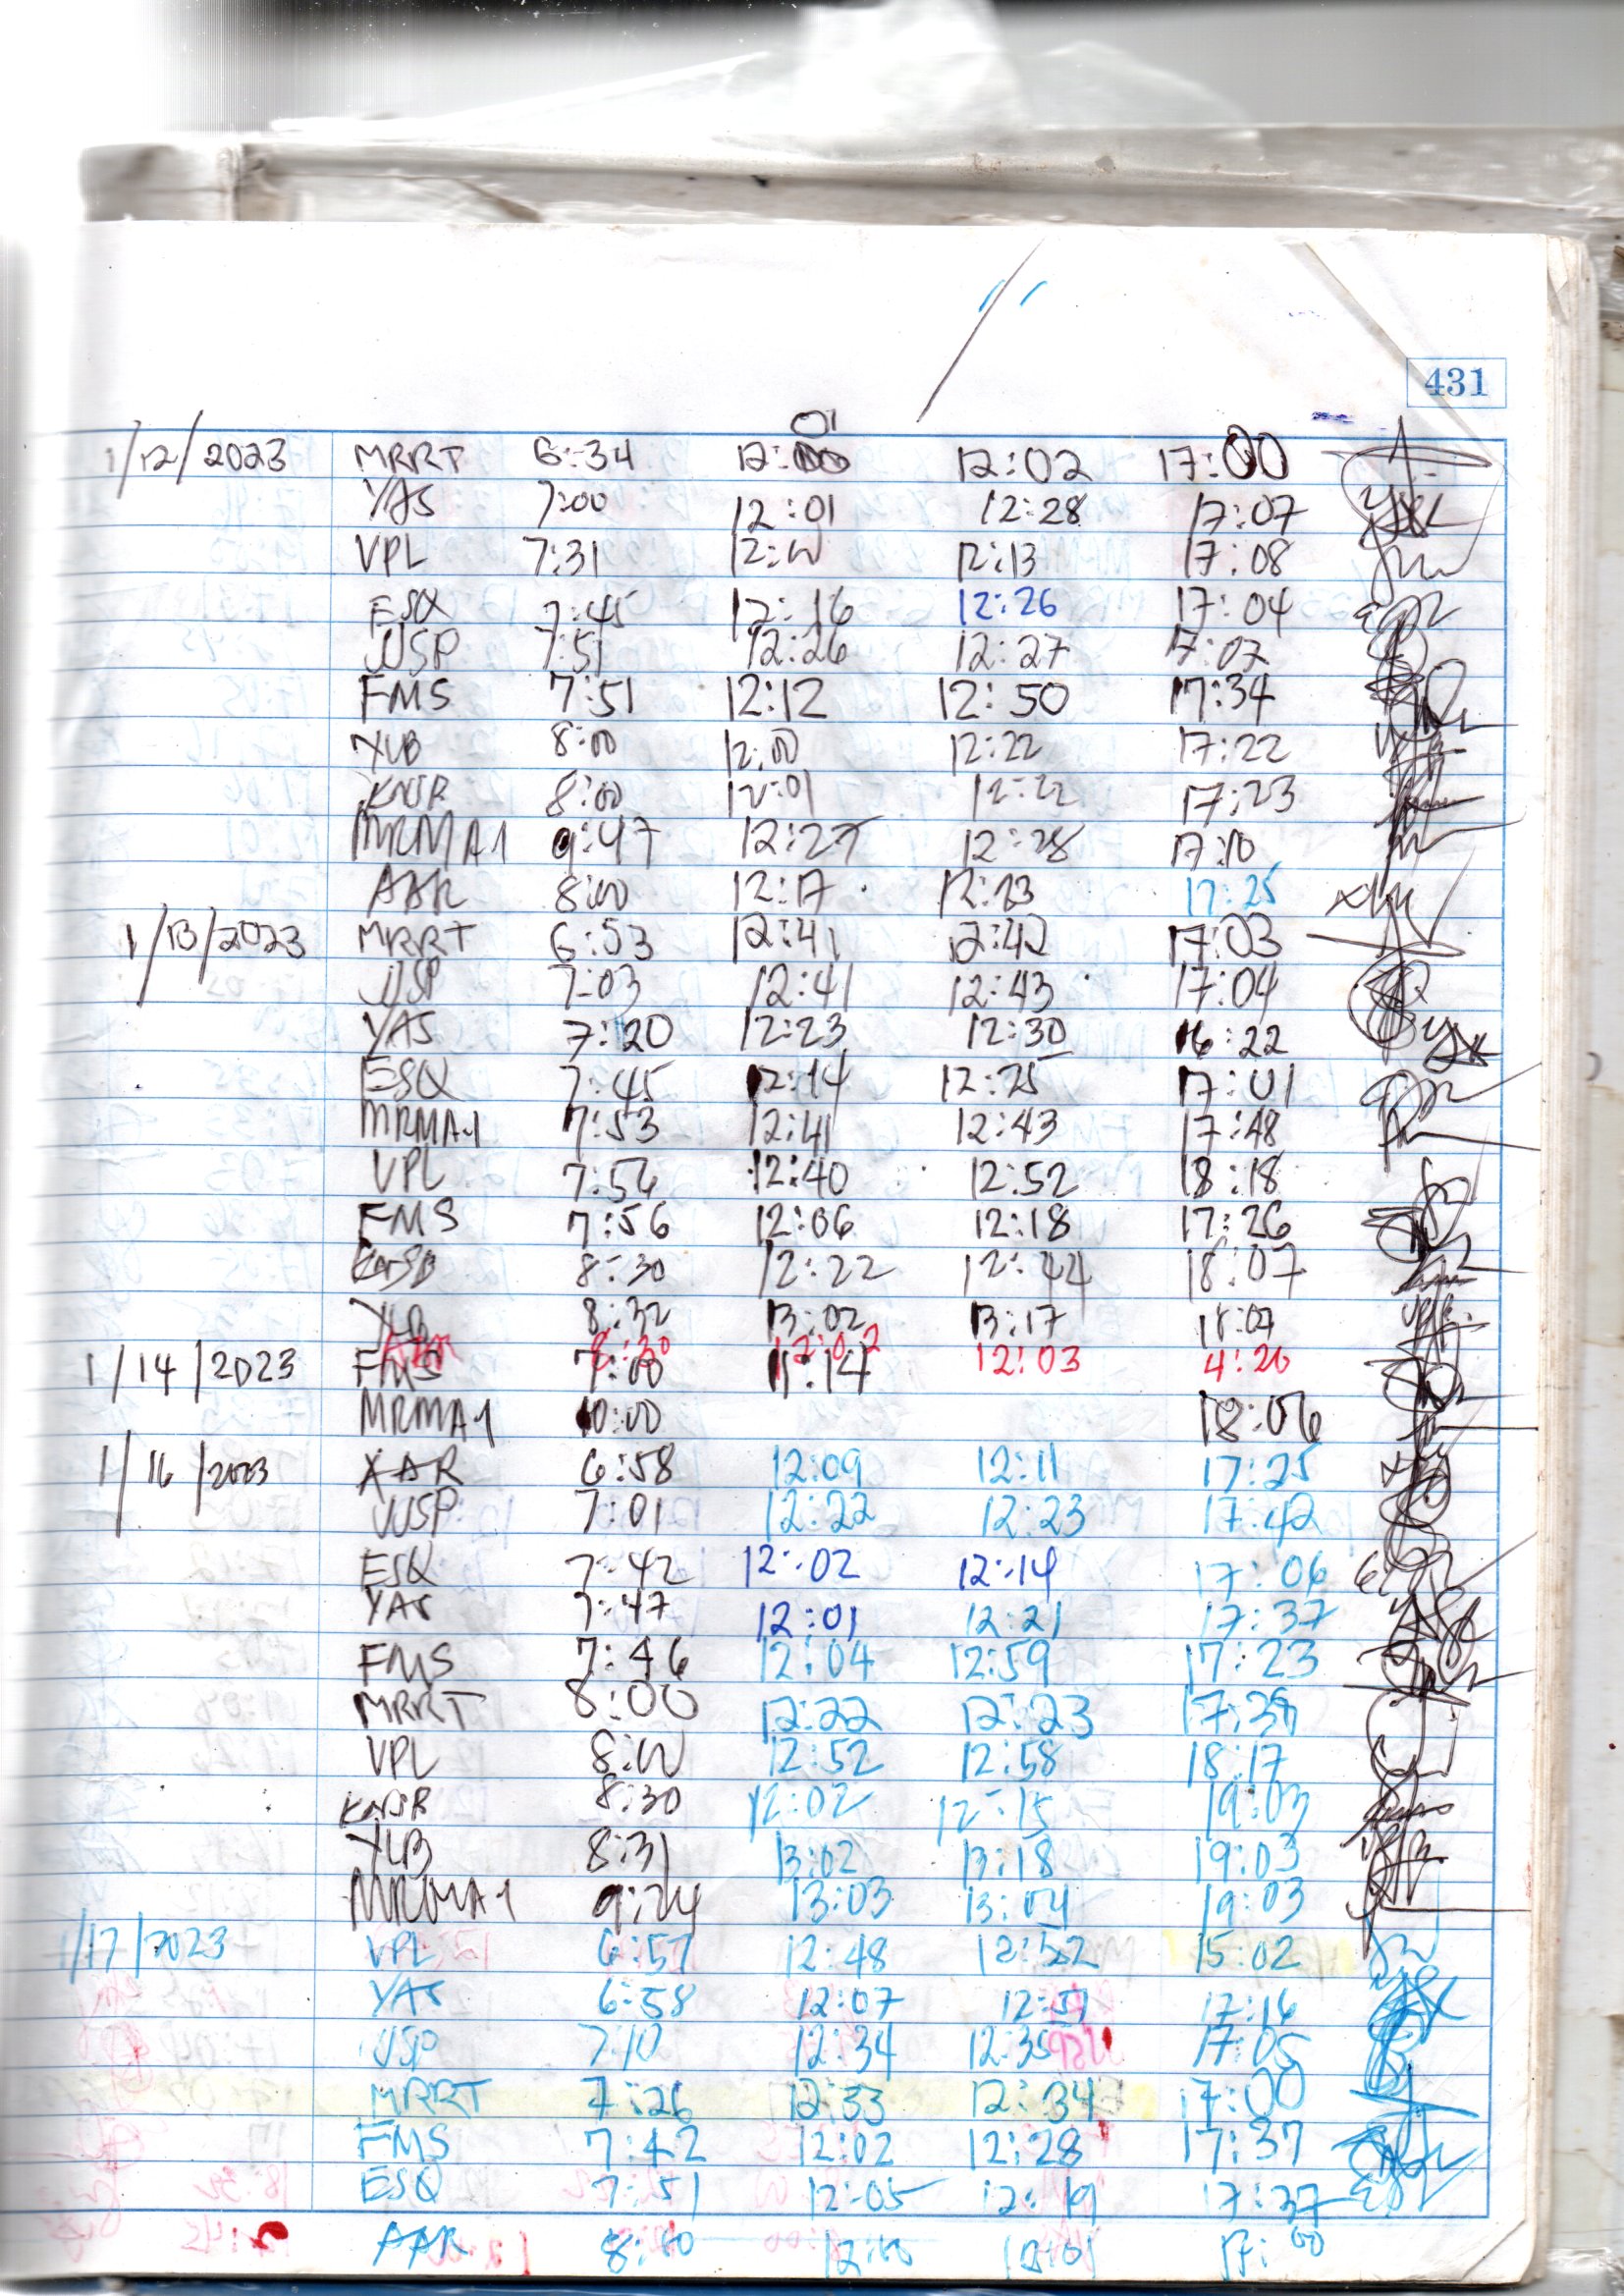 431
1/12/2023 MRRT 6:34 12:01 12:02 17:00
YAS 7:00 12:01 12:28 17:07
VPL 7:31 12:W 12:13 17:08
ESQ 7:45 12:16 12:26 17:04
JJSP 7:51 12:26 12:27 17:07
FMS 7:51 12:12 12:50 17:34
XLB 8:00 12:00 12:22 17:22
8:00 12:01 12:22 17:23
MRMA1 9:47 12:27 12:28 17:10
AAR 8:00 12:17 12:23 17:25
1/13/2023 MRRT 6:53 12:41 12:42 17:03
JJSP 7:03 12:41 12:43 17:04
YAS 7:20 12:23 12:30 16:22
ESQ 7:45 12:14 12:25 17:01
MRMA1 7:53 12:41 12:43 17:48
VPL 7:56 12:40 12:52 18:18
FMS 7:56 12:06 12:18 17:26
8:30 12:22 12:44 18:07
XLB 8:32 13:02 13:17 18:07
12:02 12:03 4:20
1/14/2023 FMS 7:00 11:14
MRMA1 10:00 18:06
1/16/2023 XAR 6:58 12:09 12:11 17:25
JJSP 7:01 12:22 12:23 17:42
ESQ 7:42 12:02 12:14 17:06
YAS 7:47 12:01 12:21 17:37
FMS 7:46 12:04 12:59 17:23
MRRT 8:00 12:22 12:23
VPL 8:00 12:52 12:58 18:17
8:30 12:02 12:15 19:03
XLB 8:31 13:02 13:18 19:03
MRMA1 9:24 13:03 13:04 19:03
1/17/2023 VPL 6:57 12:48 12:52 15:02
YAS 6:58 12:07 17:16
JJSP 7:10 12:34 12:35 17:05
MRRT 7:26 12:33 12:34 17:00
FMS 7:42 12:02 12:28 17:37
ESQ 7:51 12:05 12:19 17:37
AAR 17:00